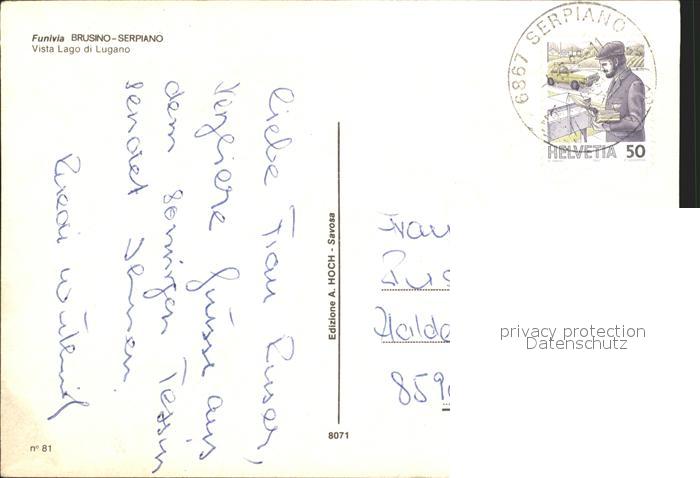 Funivia BRUSINO-SERPIANO
Vista Lago di Lugano
6867 SERPIANO
HELVETIA 50
Liebe Frau Ruser,
Grüsse aus
dem sonnigen Tessin
sendet Ihnen
Ruedi
Edizione A. HOCH - Savosa
8071
Frau
Halde
859
privacy protection
Datenschutz
nº 81